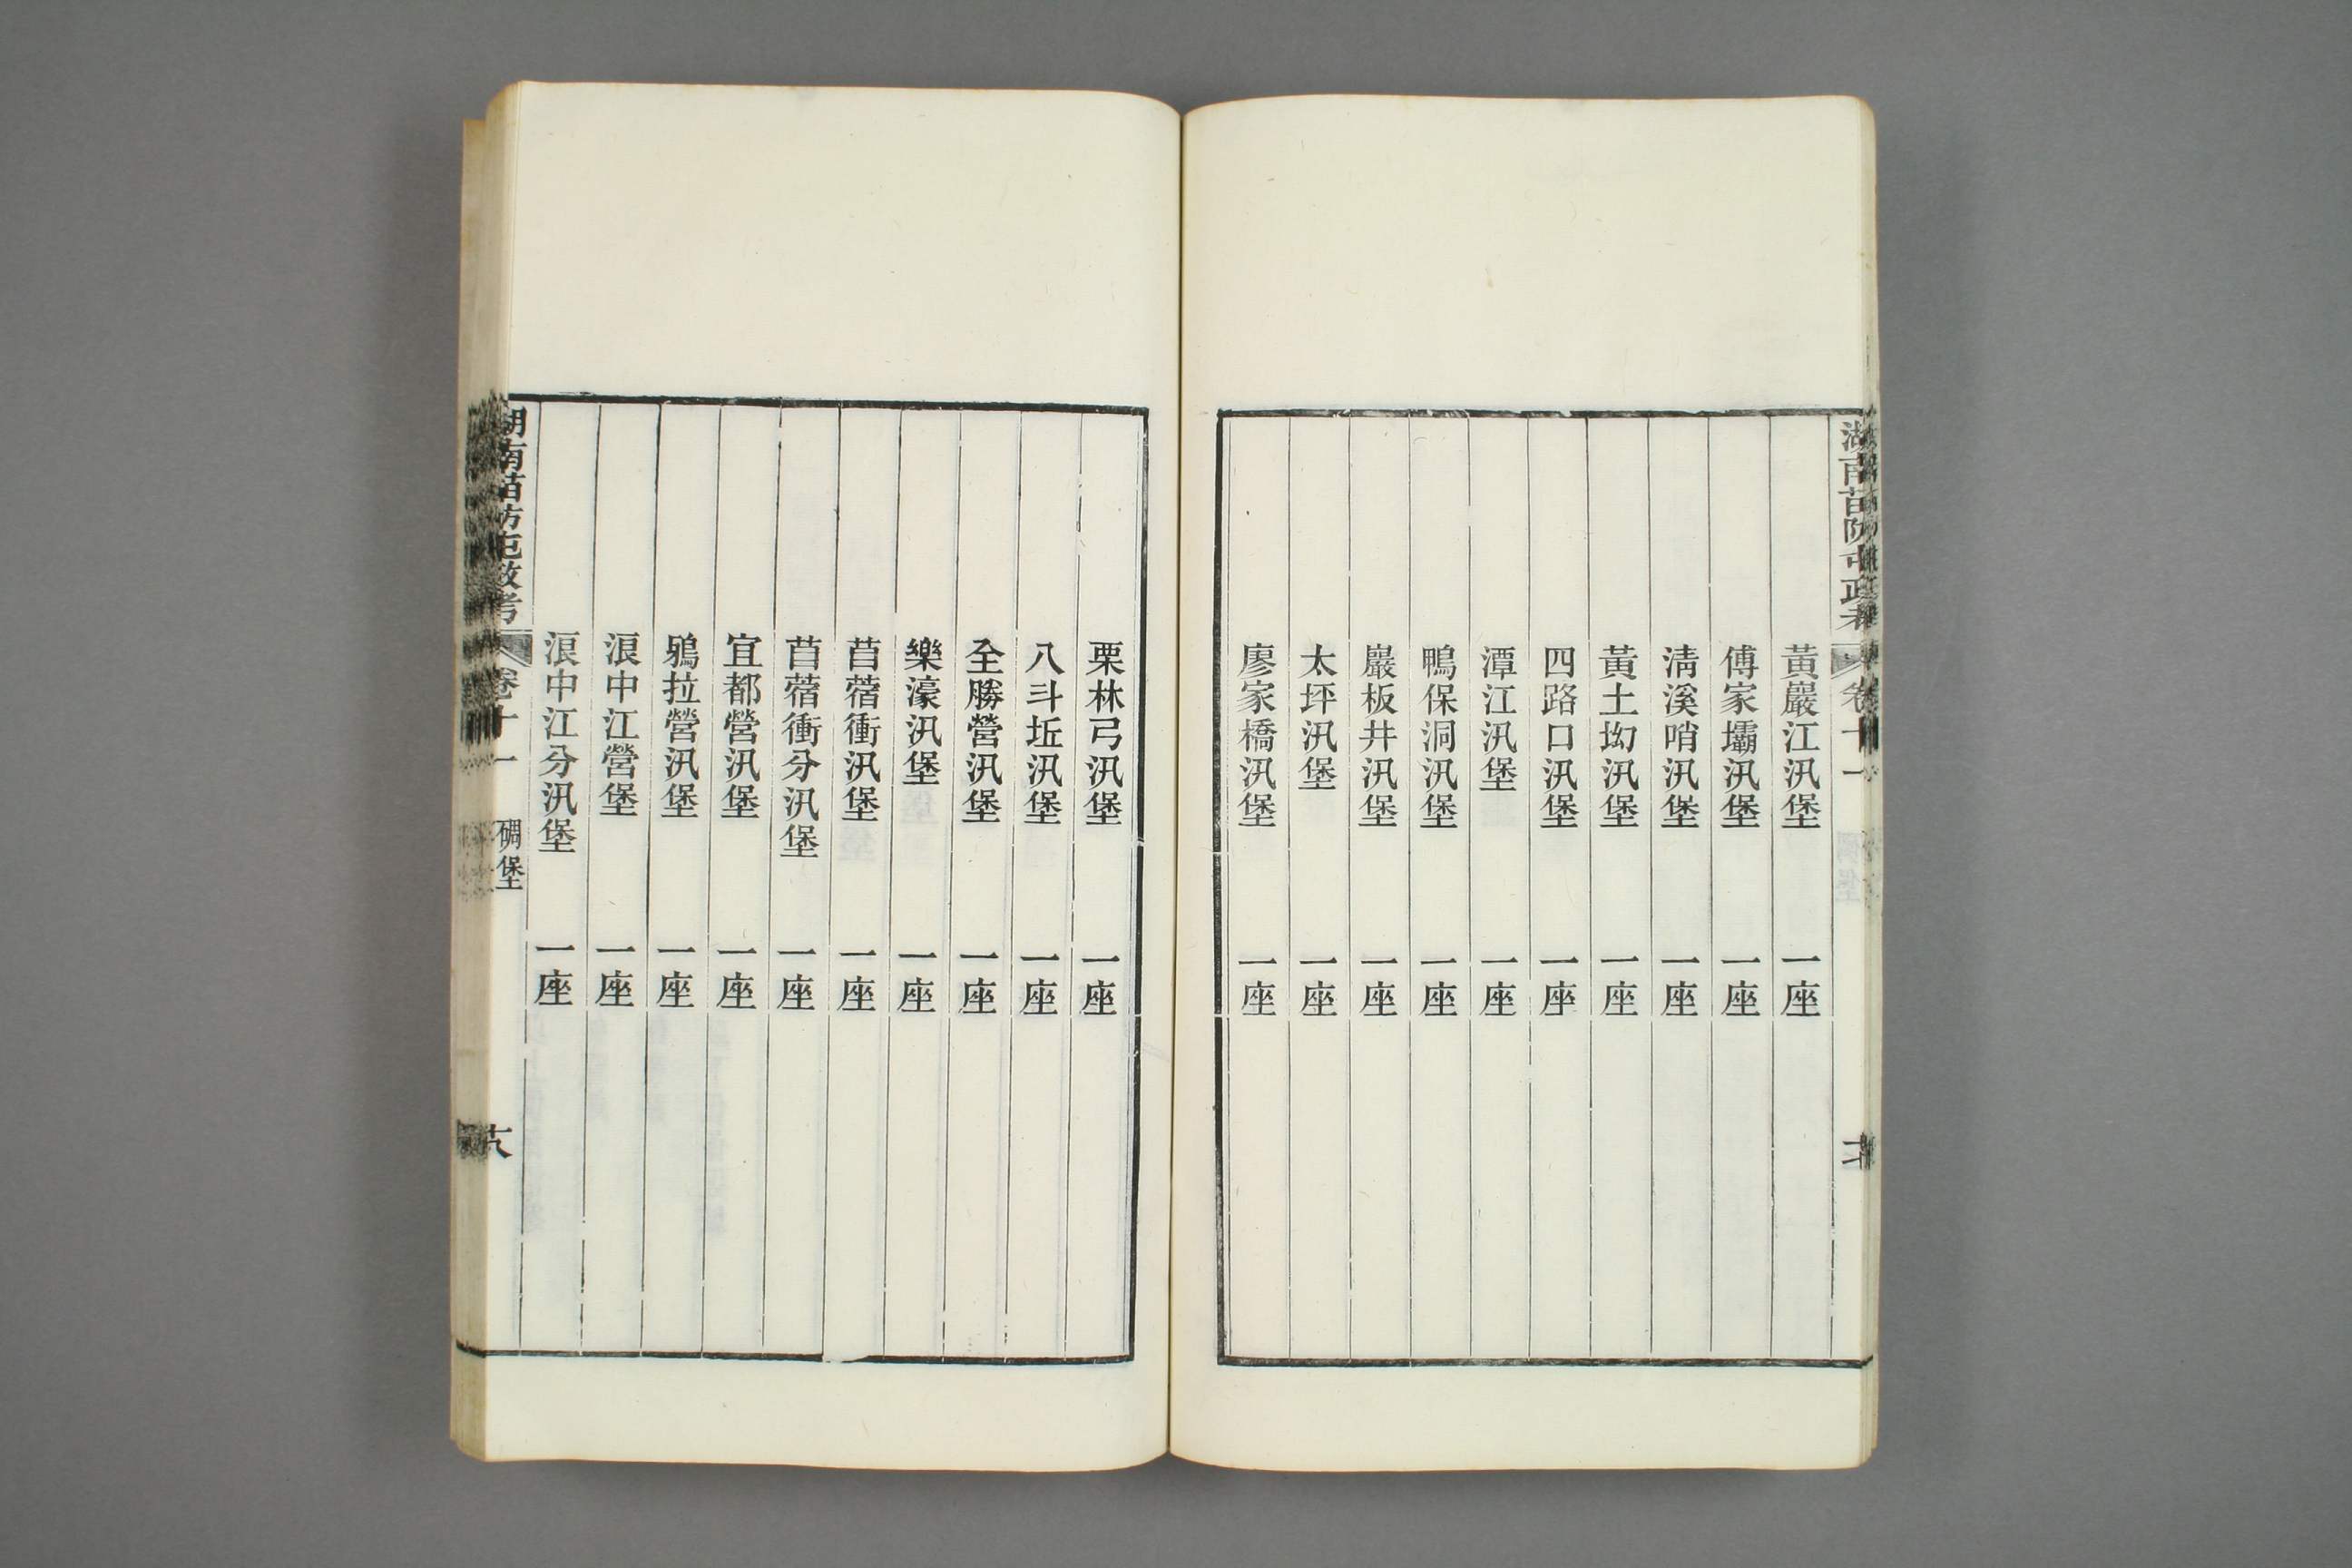 湖南苗防屯政考 卷十一
黃巖江汛堡 一座
傅家壩汛堡 一座
淸溪哨汛堡 一座
黃土坳汛堡 一座
四路口汛堡 一座
潭江汛堡 一座
鴨保洞汛堡 一座
巖板井汛堡 一座
太坪汛堡 一座
廖家橋汛堡 一座
栗林弓汛堡 一座
八斗坵汛堡 一座
全勝營汛堡 一座
樂濠汛堡 一座
苜蓿衝汛堡 一座
苜蓿衝分汛堡 一座
宜都營汛堡 一座
鴉拉營汛堡 一座
浪中江營堡 一座
浪中江分汛堡 一座
湖南苗防屯政考 卷十一 碉堡 十八